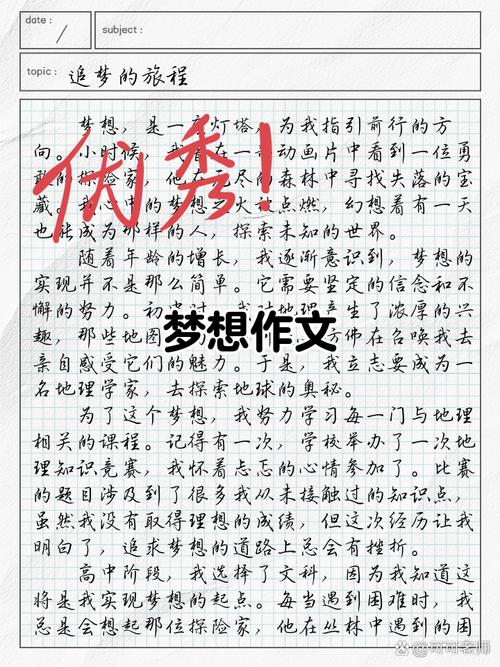 date:
subject:
topic: 追梦的旅程
梦想，是一 灯塔，为我指引前行的方
向。小时候，我 在一 动画片中看到一位勇
敢的探险家，他在无尽的森林中寻找失落的宝
藏。我心中的梦想之火被点燃，幻想着有一天
也能成为那样的人，探索未知的世界。
优秀！
随着年龄的增长，我逐渐意识到，梦想的
实现并不是那么简单。它需要坚定的信念和不
懈的努力。初 时，我对地理产生了浓厚的兴
趣，那些地图 方 佛在召唤我去
梦想作文
亲自感受它们的魅力。于是，我立志要成为一
名地理学家，去探索地球的奥秘。
为了这个梦想，我努力学习每一门与地理
相关的课程。记得有一次，学校举办了一次地
理知识竞赛，我怀着忐忑的心情参加了。比赛
的题目涉及到了很多我从未接触过的知识点，
虽然我没有取得理想的成绩，但这次经历让我
明白了，追求梦想的道路上总会有挫折。
高中阶段，我选择了文科，因为我知道这
将是我实现梦想的起点。每当遇到困难时，我
总是会想起那位探险家，他在丛林中遇到的困
@可可老师